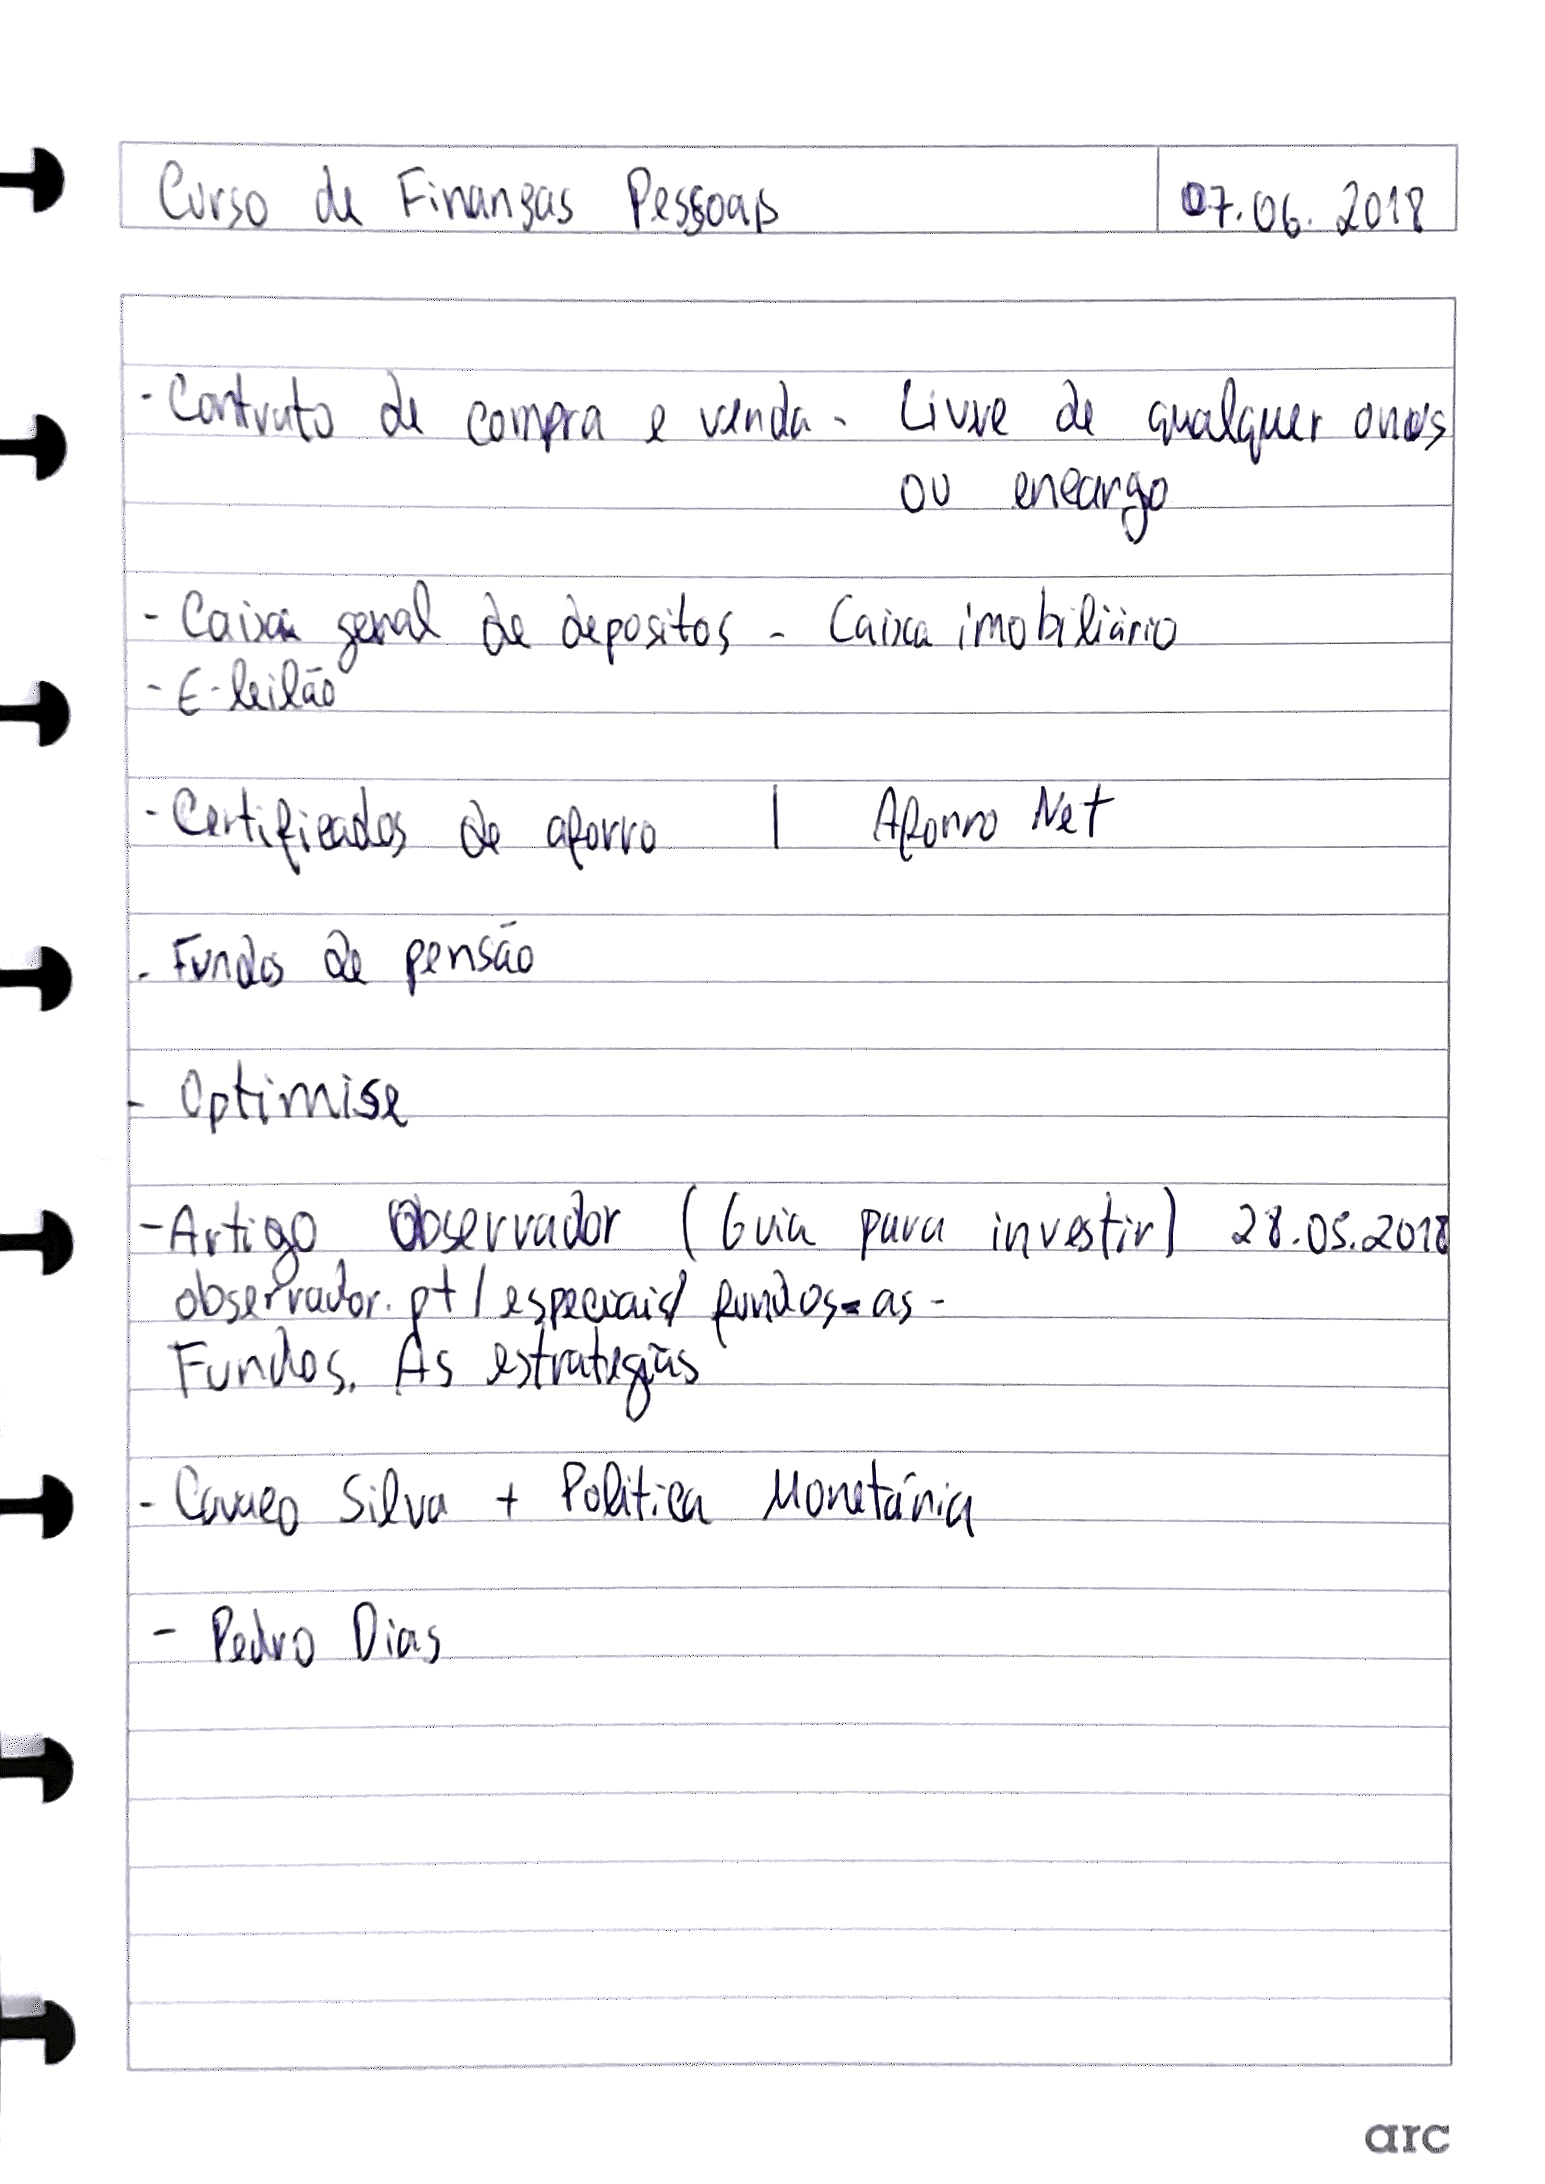 Curso de Finanças Pessoais 07.06.2018
- Contrato de compra e venda - Livre de qualquer onos
ou encargo
- Caixa geral de depositos - Caixa imobiliário
- E-leilão
- Certificados de aforro | Aforro Net
- Fundos de pensão
- Optimise
- Artigo Observador (Guia para investir) 28.05.2018
observador.pt/especiais/fundos-as-
Fundos. As estrategias
- Cavaco Silva + Politica Monetária
- Pedro Dias
arc